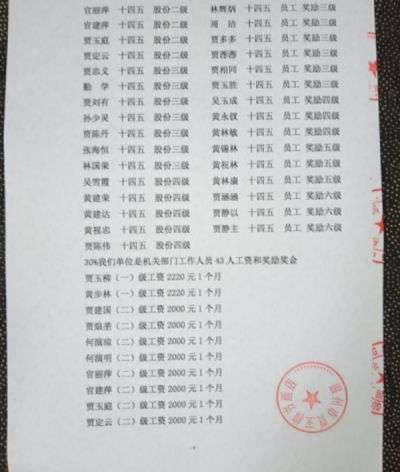 官丽萍 十四五 股份二级 林辉炳 十四五 员工 奖励三级
官建萍 十四五 股份二级 周洁 十四五 员工 奖励三级
贾玉庭 十四五 股份二级 贾多多 十四五 员工 奖励三级
贾定云 十四五 股份二级 贾茜茜 十四五 员工 奖励三级
贾忠义 十四五 股份三级 贾相同 十四五 员工 奖励三级
勤学 十四五 股份三级 贾玉胜 十四五 员工 奖励三级
贾刘有 十四五 股份三级 吴玉成 十四五 员工 奖励四级
孙少灵 十四五 股份三级 黄永钗 十四五 员工 奖励四级
贾陈丹 十四五 股份三级 黄林敏 十四五 员工 奖励四级
张海恒 十四五 股份三级 黄锦林 十四五 员工 奖励五级
林国荣 十四五 股份三级 黄祝林 十四五 员工 奖励五级
吴雪霞 十四五 股份四级 黄林康 十四五 员工 奖励五级
黄建荣 十四五 股份四级 贾涵涵 十四五 员工 奖励六级
黄建达 十四五 股份四级 贾静以 十四五 员工 奖励六级
黄祝忠 十四五 股份四级 贾静主 十四五 员工 奖励六级
贾陈伟 十四五 股份四级
30%我们单位是机关部门工作人员43人工资和奖励奖金
贾玉柳（一）级工资2220元1个月
黄步林（一）级工资2220元1个月
贾建国（二）级工资2000元1个月
贾焕圣（二）级工资2000元1个月
何演瑜（二）级工资2000元1个月
何演明（二）级工资2000元1个月
官丽萍（二）级工资2000元1个月
官建萍（二）级工资2000元1个月
贾玉庭（二）级工资2000元1个月
贾定云（二）级工资2000元1个月